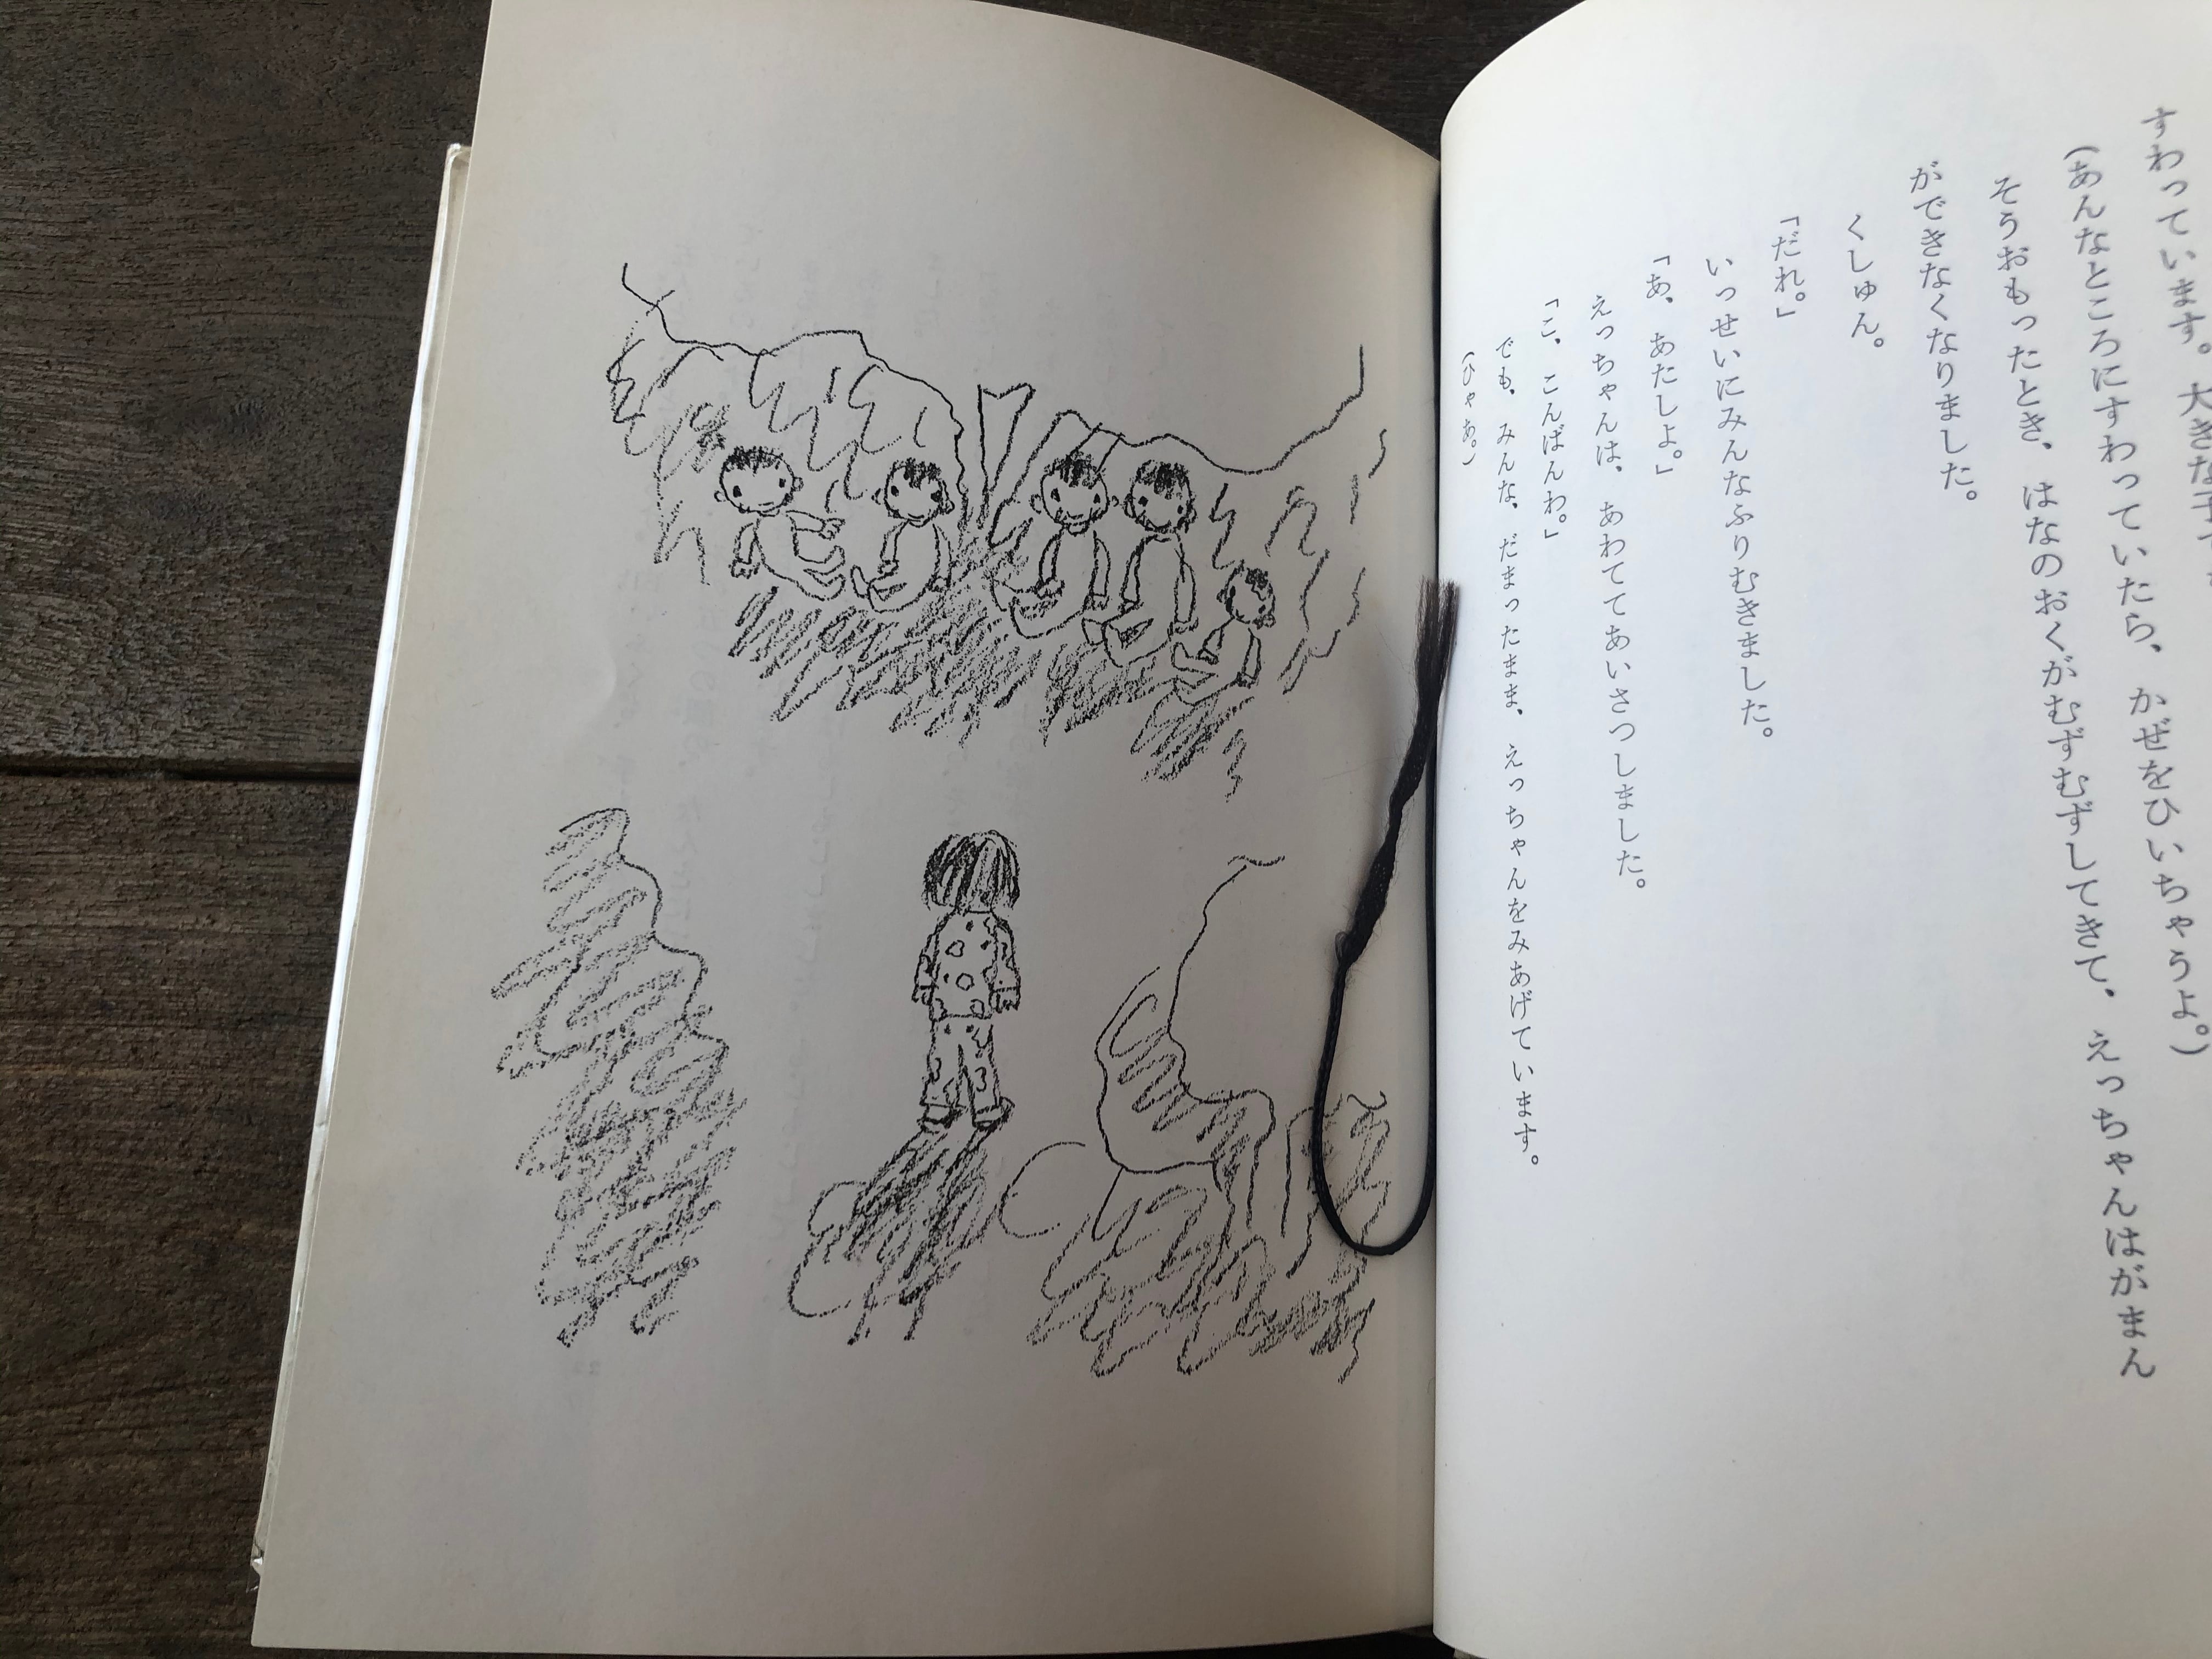 すわっています。大きな
(あんなところにすわっていたら、かぜをひいちゃうよ。)
そうおもったとき、はなのおくがむずむずしてきて、えっちゃんはがまん
ができなくなりました。
くしゅん。
「だれ。」
いっせいにみんなふりむきました。
「あ、あたしよ。」
えっちゃんは、あわててあいさつしました。
「こ、こんばんわ。」
でも、みんな、だまったまま、えっちゃんをみあげています。
(ひゃあ。)